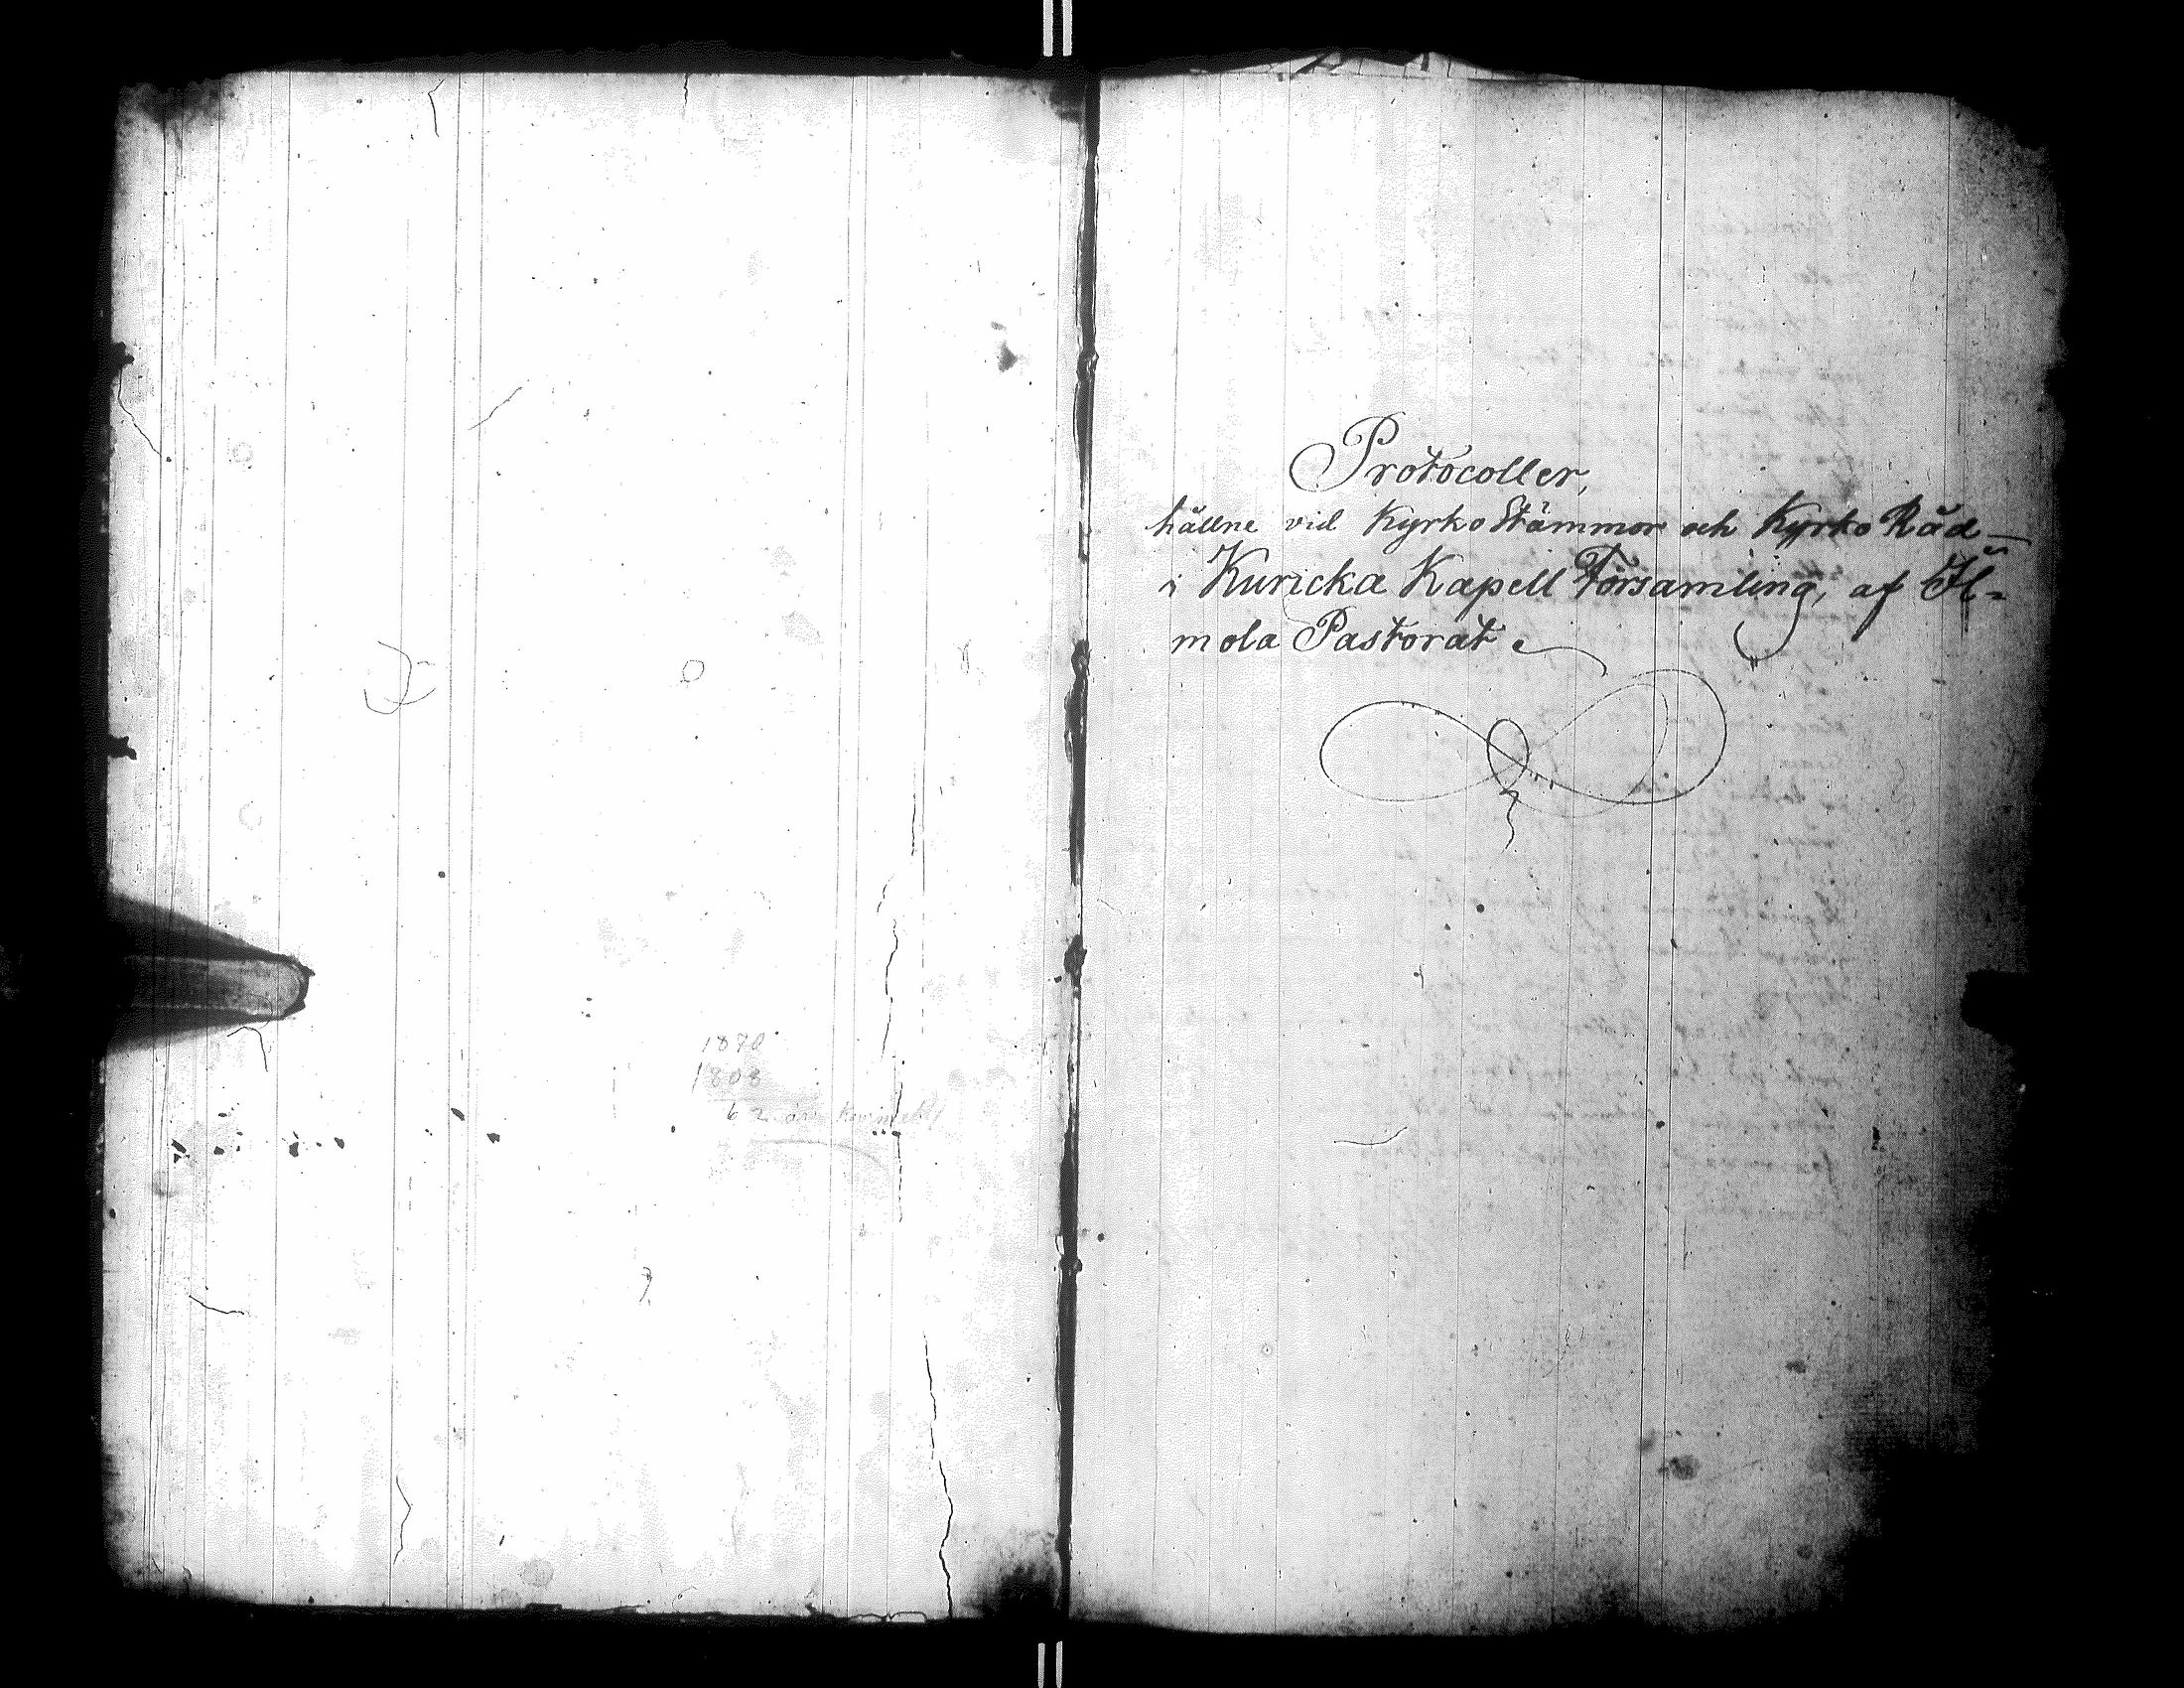 1870
1808
62 år
Protocoller,
hållne vid Kyrko Stämmor och Kyrko Råd
i Kuricka Kapell Församling, af Il-
mola Pastorat